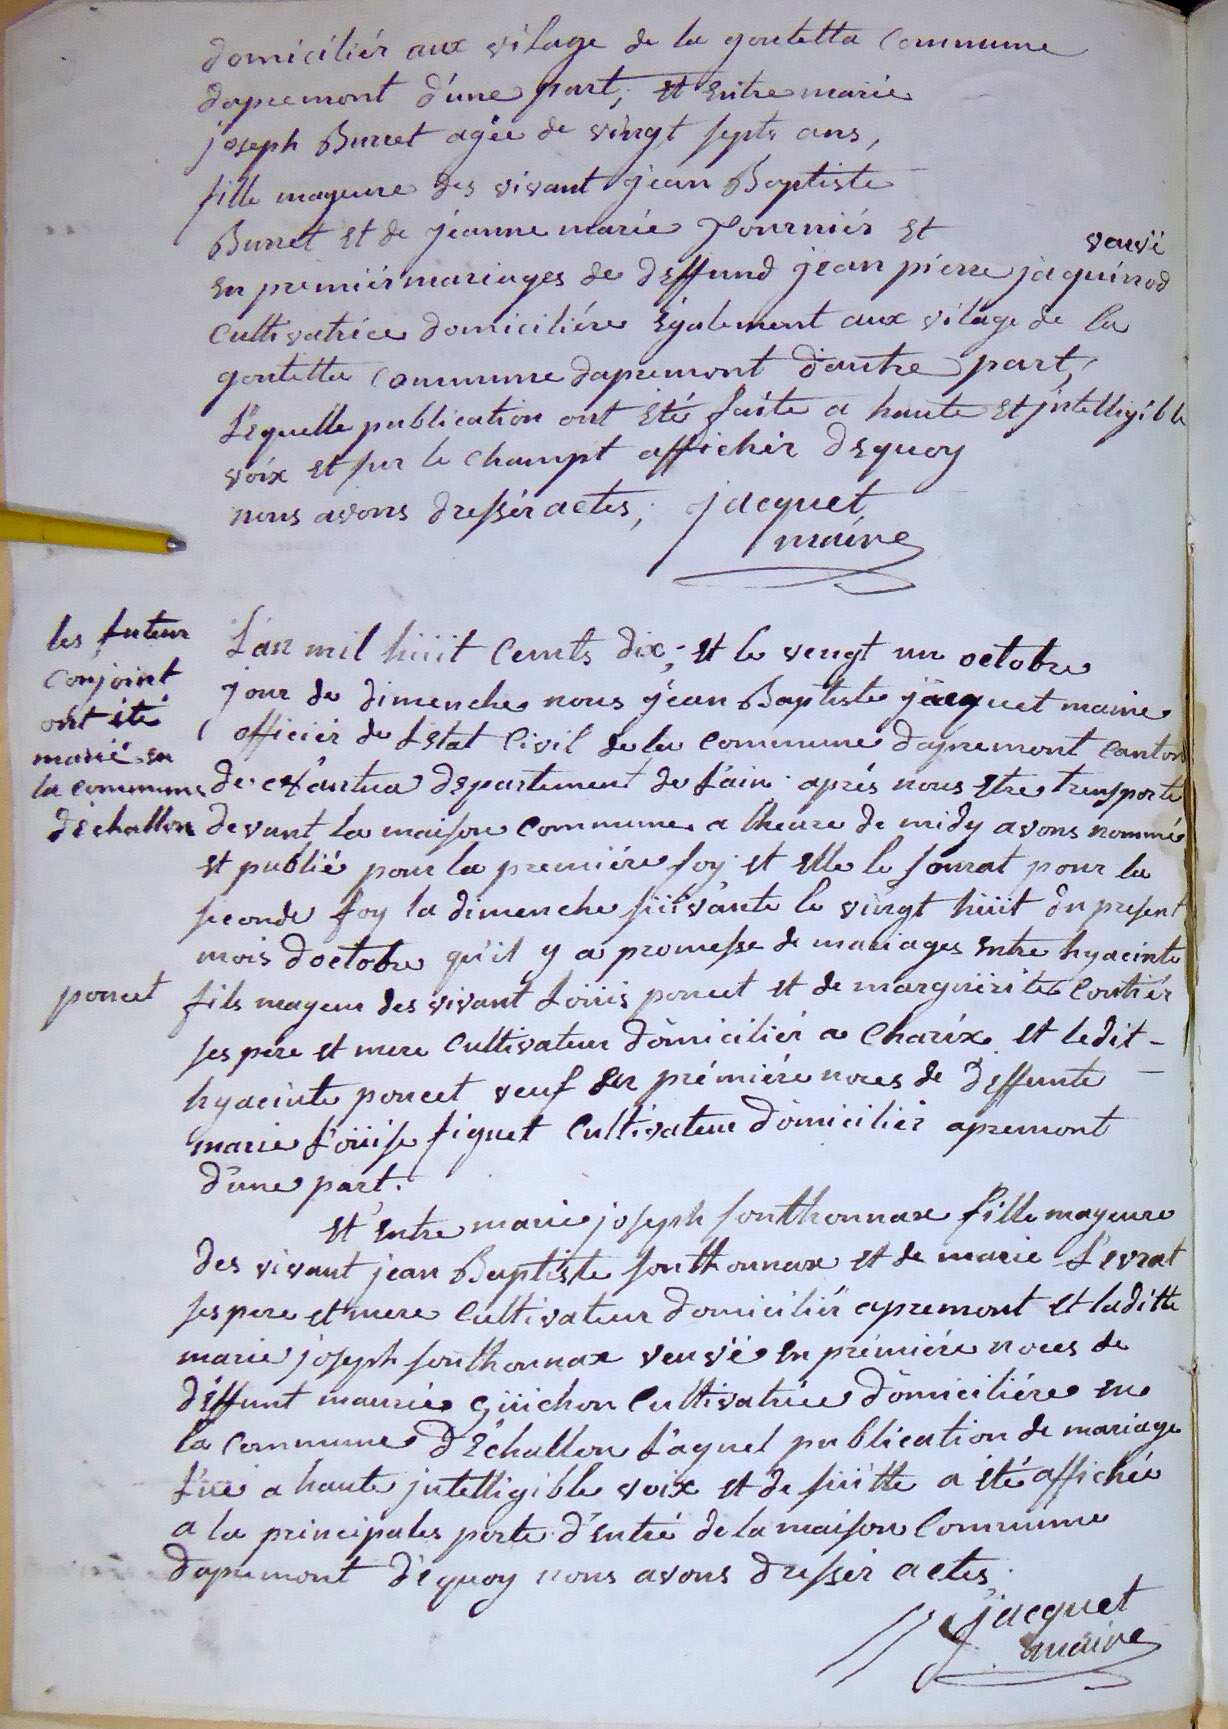 domiciliér aux vilage de la goutetta Commune
dapremont d'une part; et entre marie
joseph Burret agée de vingt septs ans,
fille mayeure des vivant jean Baptiste
Burret et de jéanne marie fournier et
veuvé
en premiér mariages de deffund jean piérre jaquinod
Cultivatrice domiciliére également aux vilage de la
goutetta Commune dapremont dautre part,
Léquelle publication ont eté faite a haute et jntelligible
voix et sur le champt affichér dequoy
nous avons dressér actes, jacquet
maire
les futeur
conjoint
ont été
marié en
la commune
déchallon
Lan mil huit Cents dix; et le vengt un octobre
jour de dimenche nous jéan Baptiste jacquet maire
officiér de Létat Civil de la commune dapremont canton
de nantua département de Lain aprés nous etre transporté
devant la maison commune a lheure de midy avons nommé
et publié pour la premiére foy et elle le sourat pour la
seconde foy la dimenche suivante le vingt huit du present
mois doctobre qu'il y a promesse de mariages entre hyacinte
poncet
fils mayeur des vivant Loüis poncet et de marguérite Coutiér
ses pere et mere Cultivateur domiciliér a Charix et ledit -
hyacinte poncet veuf en prémiére noces de deffunte -
marie Loüise figuet Cultivateur domiciliér apremont
d'une part.
et entre marie joseph fonthonnax fille mayeure
des vivant jean Baptiste fonthonnax et de marie Levrat
ses pere et mere Cultivateur domiciliér apremont et laditte
marie joseph fonthonnax veuvé en prémiére noces de
déffunt maurice Guichon Cultivatrice domiciliére en
la commune d'Echallon Laquel publication de mariage
Lue a haute jntelligible voix et de suitte a été affichée
a la principales porte d'entré de la maison Commune
dapremont déquoy nous avons dressér actes.
jacquet
maire